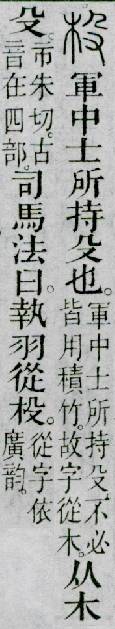 杸軍中士所持殳也。軍中士所持殳、不必皆用積竹。故字從木。从木
殳。市朱切。古音在四部。司馬法曰。執羽從杸。從字依廣韵。